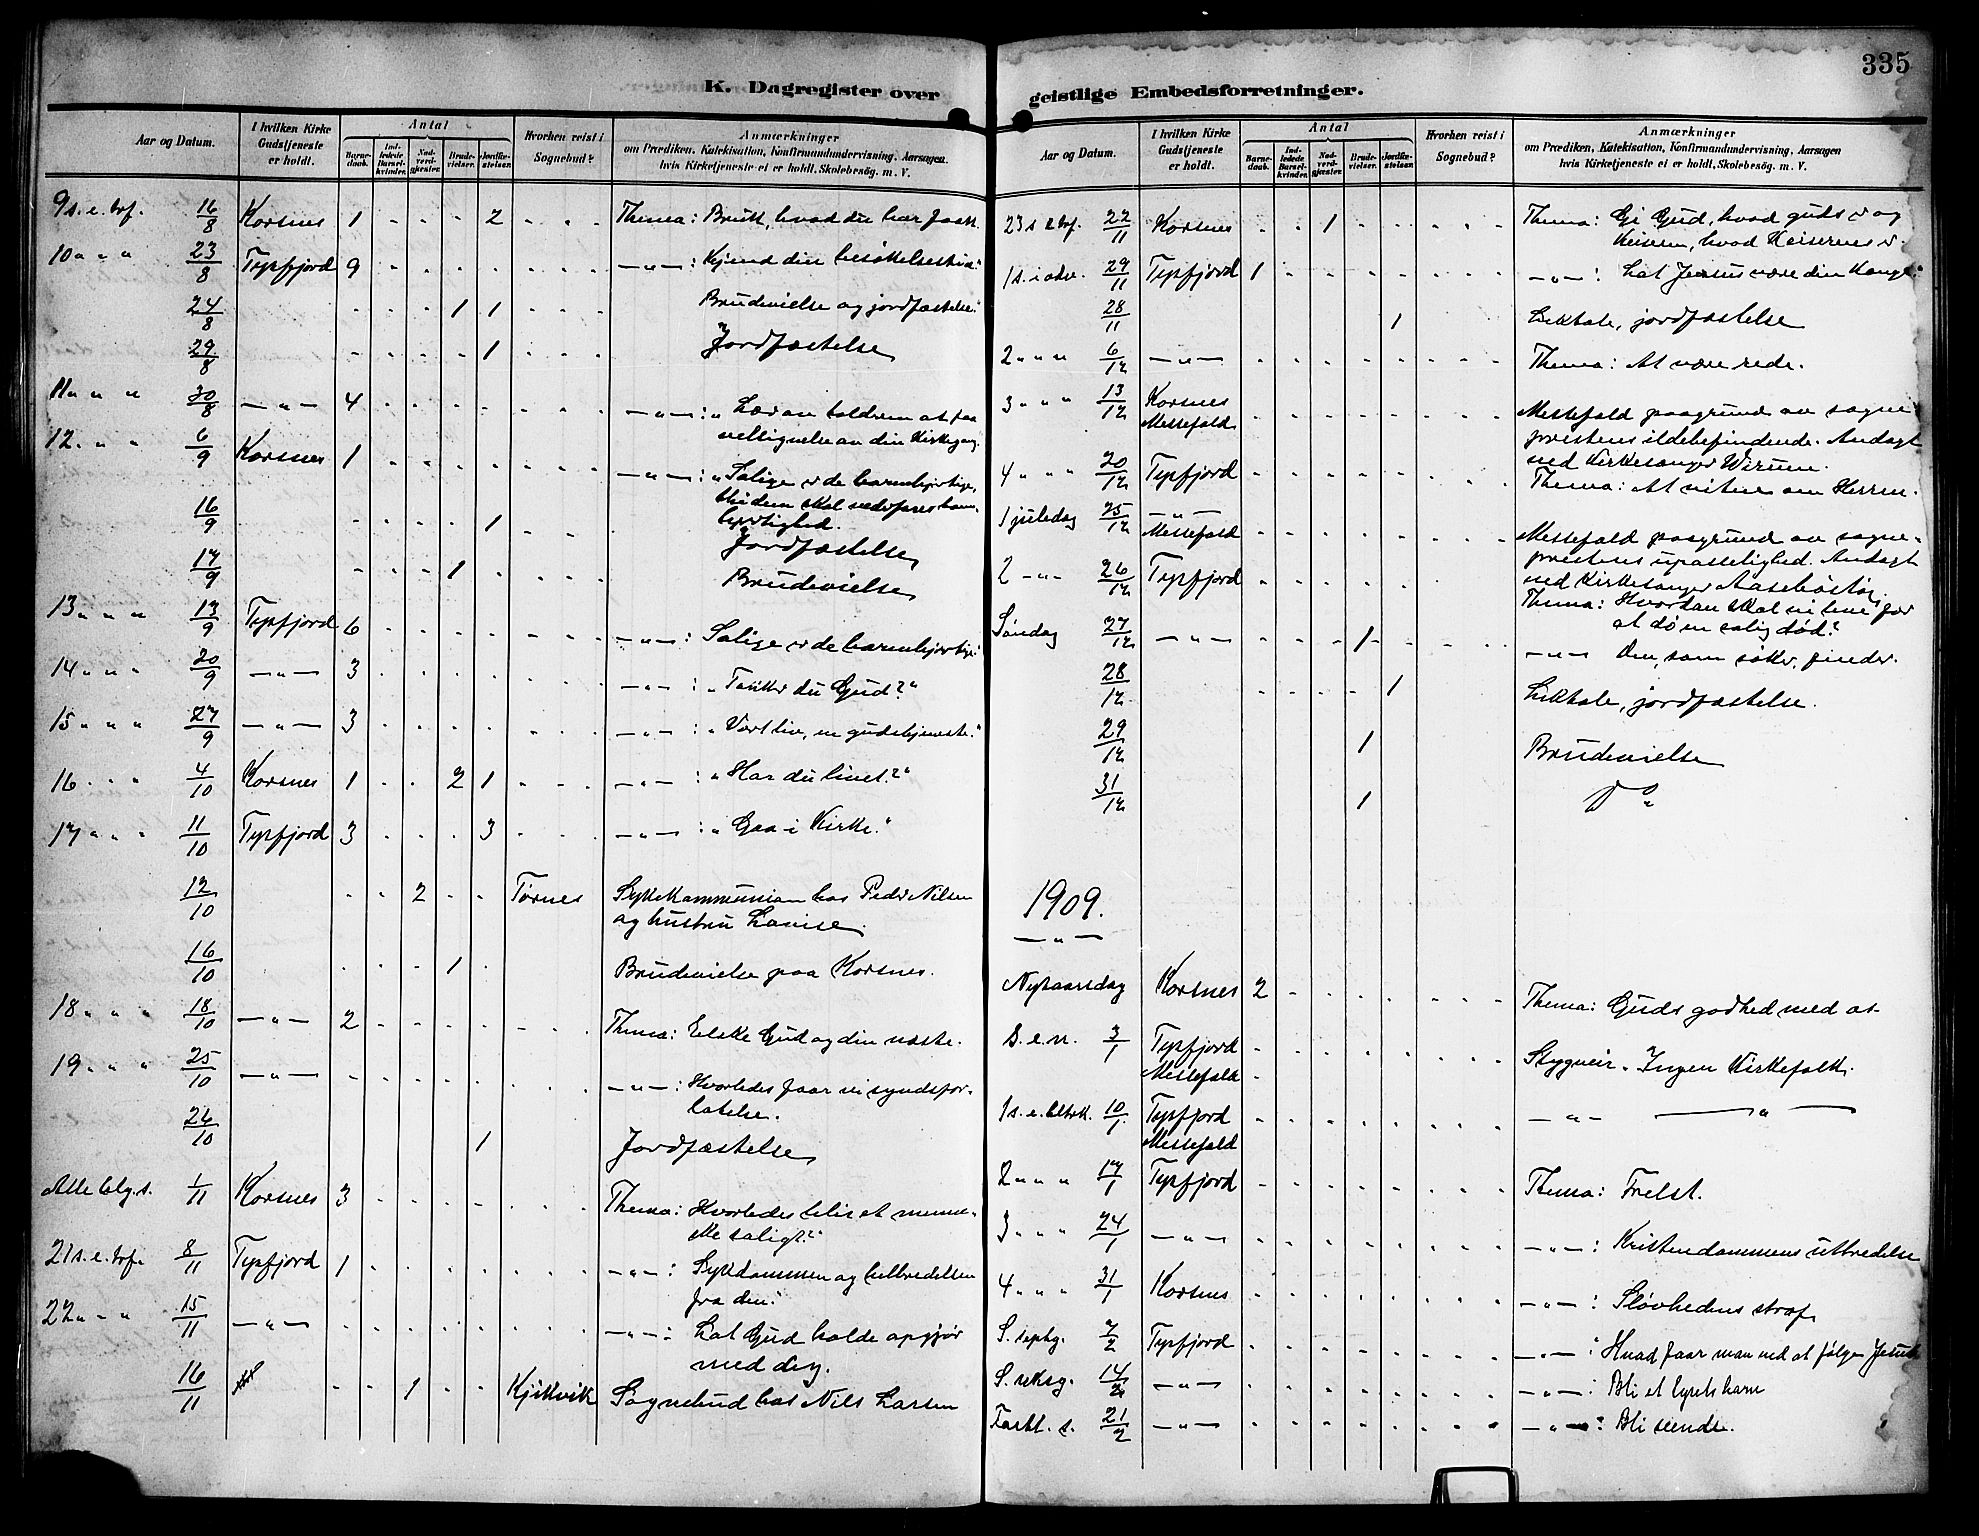 335
K. Dagregister over
geistlige Embedsforretninger.
Aar og Datum.
I hvilken Kirke Gudstjeneste er holdt.
Antal
Barne-daab.
Ind-ledede Barsel-kvinder.
Nad-verd-gjæster.
Brude-vielser.
Jordfæ-stelser.
Hvorhen reist i Sognebud?
Anmærkninger
om Prædiken, Katekisation, Konfirmandundervisning, Aarsagen
hvis Kirketjeneste ei er holdt, Skolebesøg. m. V.
9 s. e. tref. 16/8 Korsnes 1 2 Thema: Bruk, hvad du har faat.
10 " " " 23/8 Tysfjord 9 — " — : Kjend din besøkelsestid."
24/8 1 1 Brudevielse og jordfæstelse.
29/8 1 Jordfæstelse
11 " " " 30/8 — " — 4 — " — : " Lær av tolderen at faa
velsignelse av din kirkegang
12. " " 6/9 Korsnes 1 — " — : " Salige er de barmhjertige,
ti dem skal vederfares barm-
hjertighed.
16/9 1 Jordfæstelse
17/9 1 Brudevielse
13 " " " 13/9 Tysfjord 6 — " — : Salige er de barmhjertige."
14 " " " 20/9 — " — 3 — " — : "
du Gud?"
15 " " " 27/9 — " — 3 — " — : " Vort liv, en gudstjeneste."
16 " " 4/10 Korsnes 1 2 1 — " — : " Har du livet?"
17 " " " 11/10 Tysfjord 3 3 — " — : " Gaa i Kirke."
12/10 2 Tørnes Sykekommunion hos Peder Nilsen
og hustru Lovise.
16/10 1 Brudevielse paa Korsnes.
18 " " " 18/10 — " — 2 Thema: Elske Gud og din næste.
19 " " " 25/10 — " — — " — : Hvorledes faar vi syndsfor-
latelse.
26/10 1 Jordfæstelse
Alle helg. s. 1/11 Korsnes 3 Thema: Hvorledes blir et menne-
ske saligt?"
21 s. e. tref. 8/11 Tysfjord 1 — " — : Sykdommen og helbredelsen
fra den."
22 " " " 15/11 — " — — " — : Lat Gud holde opgjør
med dig.
16/11 1 Kjikvik Sognebud hos Nils Larsen
Aar og Datum.
I hvilken Kirke Gudstjeneste er holdt.
Antal
Barne-daab.
Ind-ledede Barsel-kvinder.
Nad-verd-gjæster.
Brude-vielser.
Jordfæ-stelser.
Hvorhen reist i Sognebud?
Anmærkninger
om Prædiken, Katekisation, Konfirmandundervisning, Aarsagen
hvis Kirketjeneste ei er holdt, Skolebesøg. m. V.
23 s. e. tref. 22/11 Korsnes 1 Thema: Gi Gud, hvad guds er og
Keiseren, hvad Keiserens er.
1 s. i adv. 29/11 Tysfjord 1 — " — : Lat Jesus være din konge."
28/11 1 Liktale, jordfæstelse
2 " " " 6/12 — " — Thema: At være rede.
3 " " " 13/12 Korsnes Messefald Messefald paagrund av sogne-
prestens ildebefindende. Andagt
ved Kirkesanger Wirum.
4 " " " 20/12 Tysfjord Thema: At vitne om Herren.
1 juledag 25/12 — " — Messefald Messefald paagrund av sogne-
prestens upasselighed. Andagt
ved Kirkesanger
2 — " — 26/12 Tysfjord Thema: Hvordan skal vi leve for
at dø en salig død?"
Søndag 27/12 — " — 1 — " — Den, som søker, finder.
28/12 1 Liktale, jordfæstelse.
29/12 1 Brudevielse
31/12 1 Do
1909.
— " —
Nytaarsdag Korsnes 2 Thema: Guds godhed med os
S. e. n. 3/1 Tysfjord Messefald Stygveir. Ingen Kirkefolk.
1 s. e. 10/1 Tysfjord Messefald — " — — " —
2 " " " 17/1 Tysfjord Thema: Frelst.
3 " " " 24/1 — " — — " — : Kristendommens utbredelse
4 " " " 31/1 Korsnes — " — : Sløvhedens straf
S. 7/2 Tysfjord — " — : Hvad faar man ved at følge Jesus
S. 14/2 — " — — " — : Bli et lysets barn
Fastel. s. 21/2 — " — — " — : Bli seende.